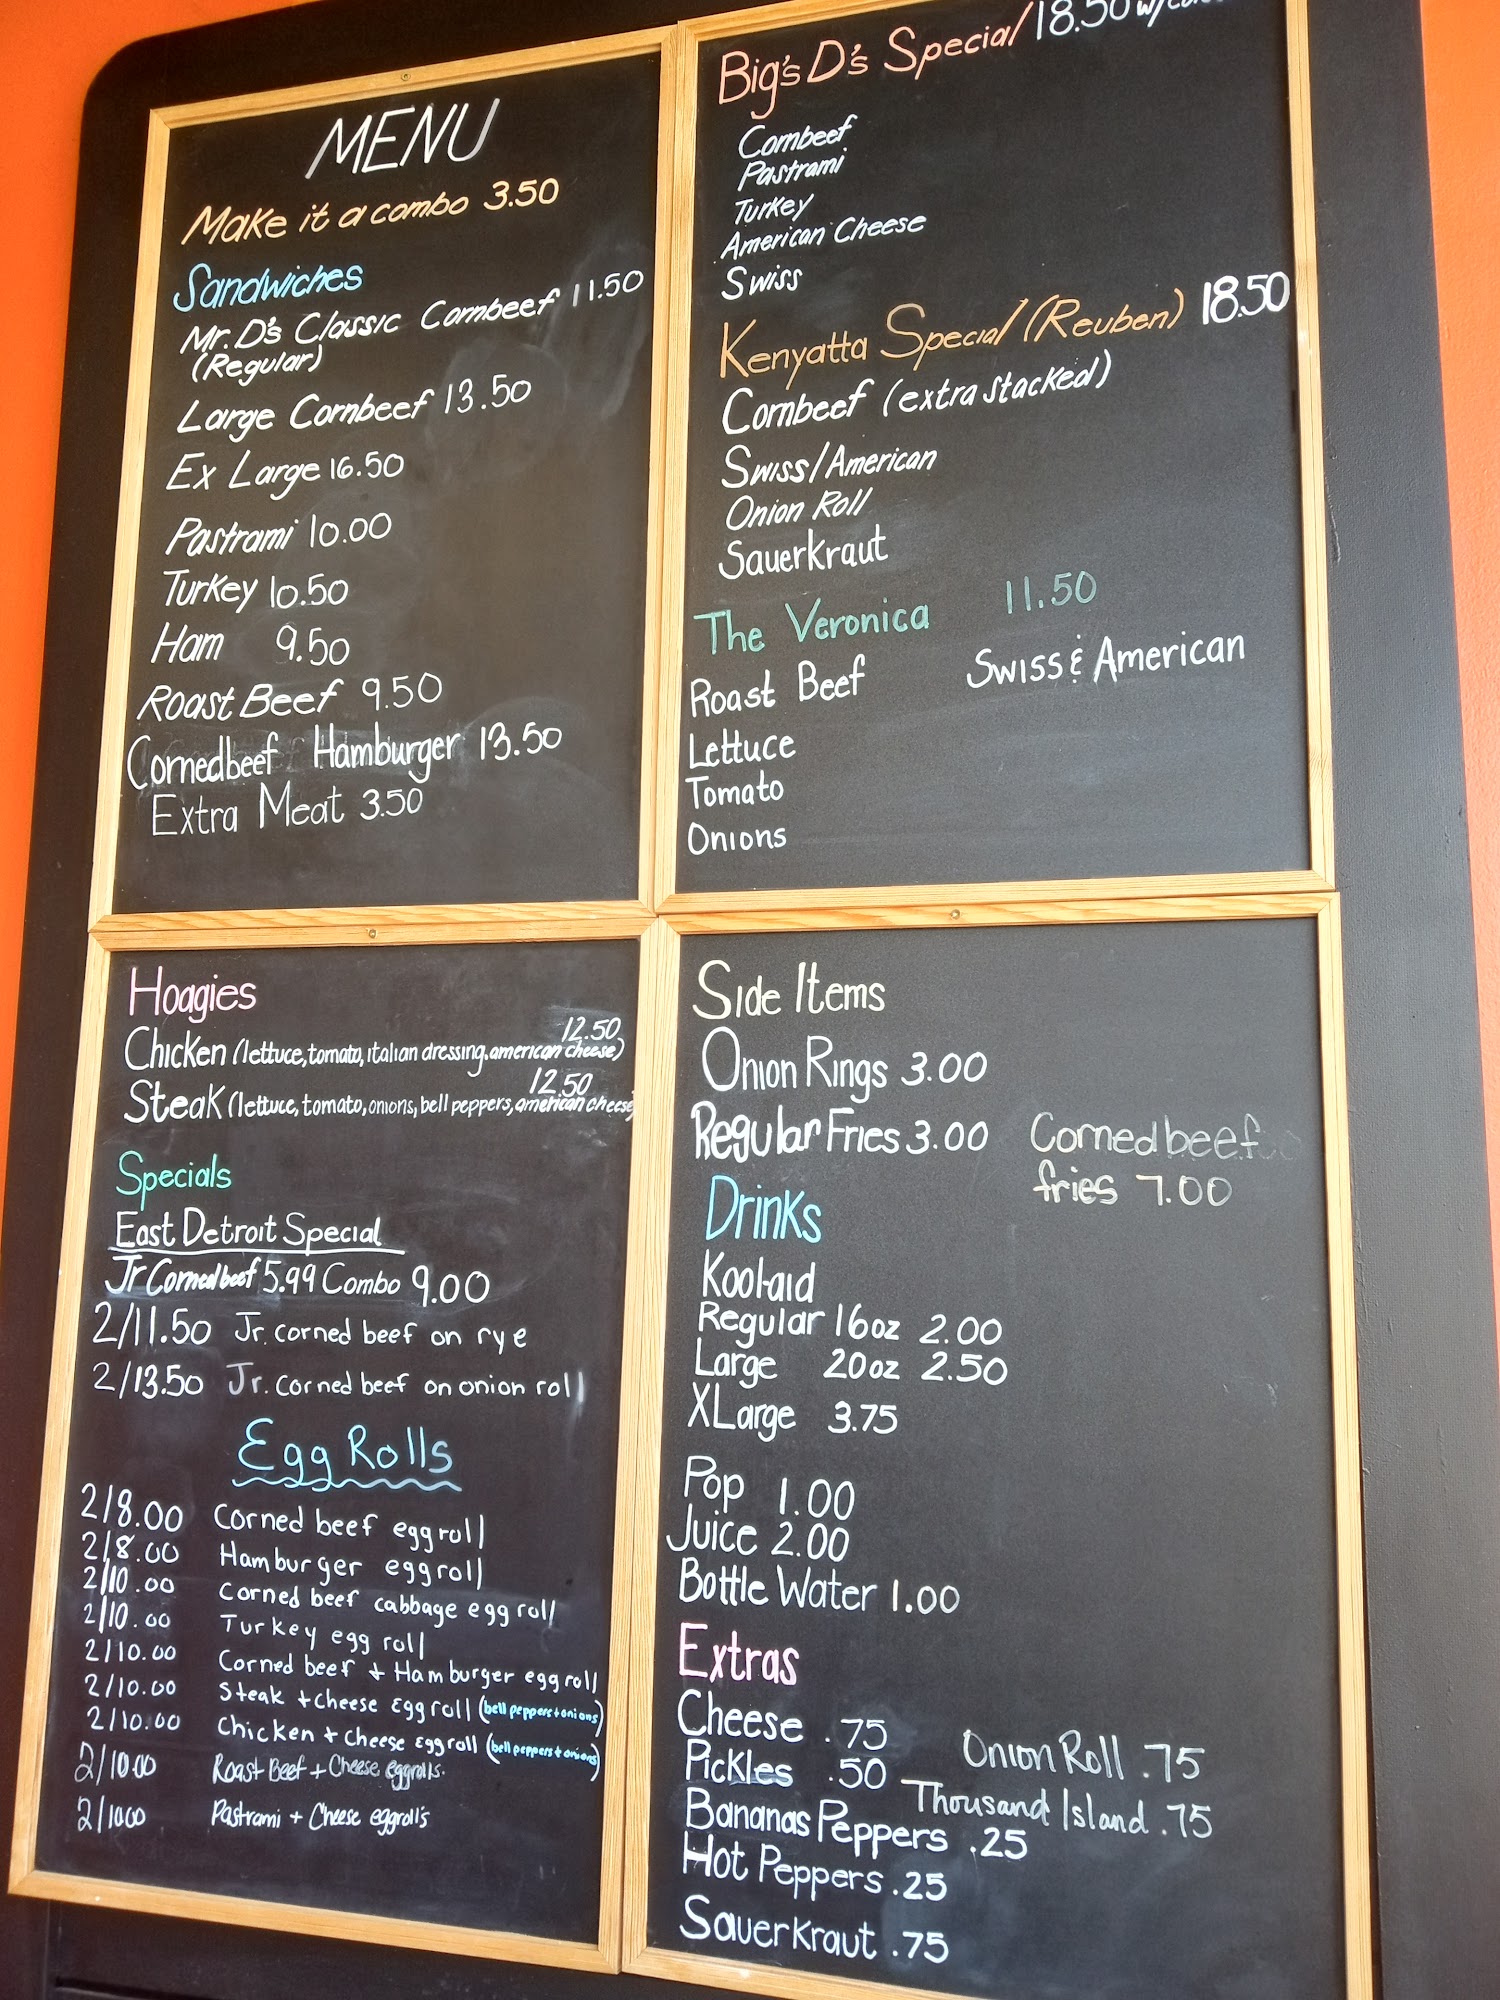 MENU
Make it a combo 3.50
Sandwiches
Mr. D's Classic Cornbeef 11.50
(Regular)
Large Cornbeef 13.50
Ex Large 16.50
Pastrami 10.00
Turkey 10.50
Ham 9.50
Roast Beef 9.50
Cornedbeef Hamburger 13.50
Extra Meat 3.50
Big's D's Special 18.50
Cornbeef
Pastrami
Turkey
American Cheese
Swiss
Kenyatta Special (Reuben) 18.50
Cornbeef (extra stacked)
Swiss/American
Onion Roll
Sauerkraut
The Veronica 11.50
Roast Beef Swiss & American
Lettuce
Tomato
Onions
Hoagies
12.50
Chicken (lettuce, tomato, italian dressing, american cheese)
12.50
Steak (lettuce, tomato, onions, bell peppers, american cheese)
Specials
East Detroit Special
Jr Cornedbeef 5.99 Combo 9.00
2/11.50 Jr. corned beef on rye
2/13.50 Jr. corned beef on onion roll
Egg Rolls
2/8.00 Corned beef egg roll
2/8.00 Hamburger egg roll
2/10.00 Corned beef cabbage egg roll
2/10.00 Turkey egg roll
2/10.00 Corned beef + Hamburger egg roll
2/10.00 Steak + cheese Egg roll (bell peppers + onions)
2/10.00 Chicken + cheese Egg roll (bell peppers + onions)
2/10.00 Roast Beef + Cheese eggrolls.
2/10.00 Pastrami + Cheese eggroll's
Side Items
Onion Rings 3.00
Regular Fries 3.00 Corned beef
fries 7.00
Drinks
Kool-aid
Regular 16oz 2.00
Large 20oz 2.50
XLarge 3.75
Pop 1.00
Juice 2.00
Bottle Water 1.00
Extras
Cheese .75 Onion Roll .75
Pickles .50 Thousand Island .75
Bananas Peppers .25
Hot Peppers .25
Sauerkraut .75